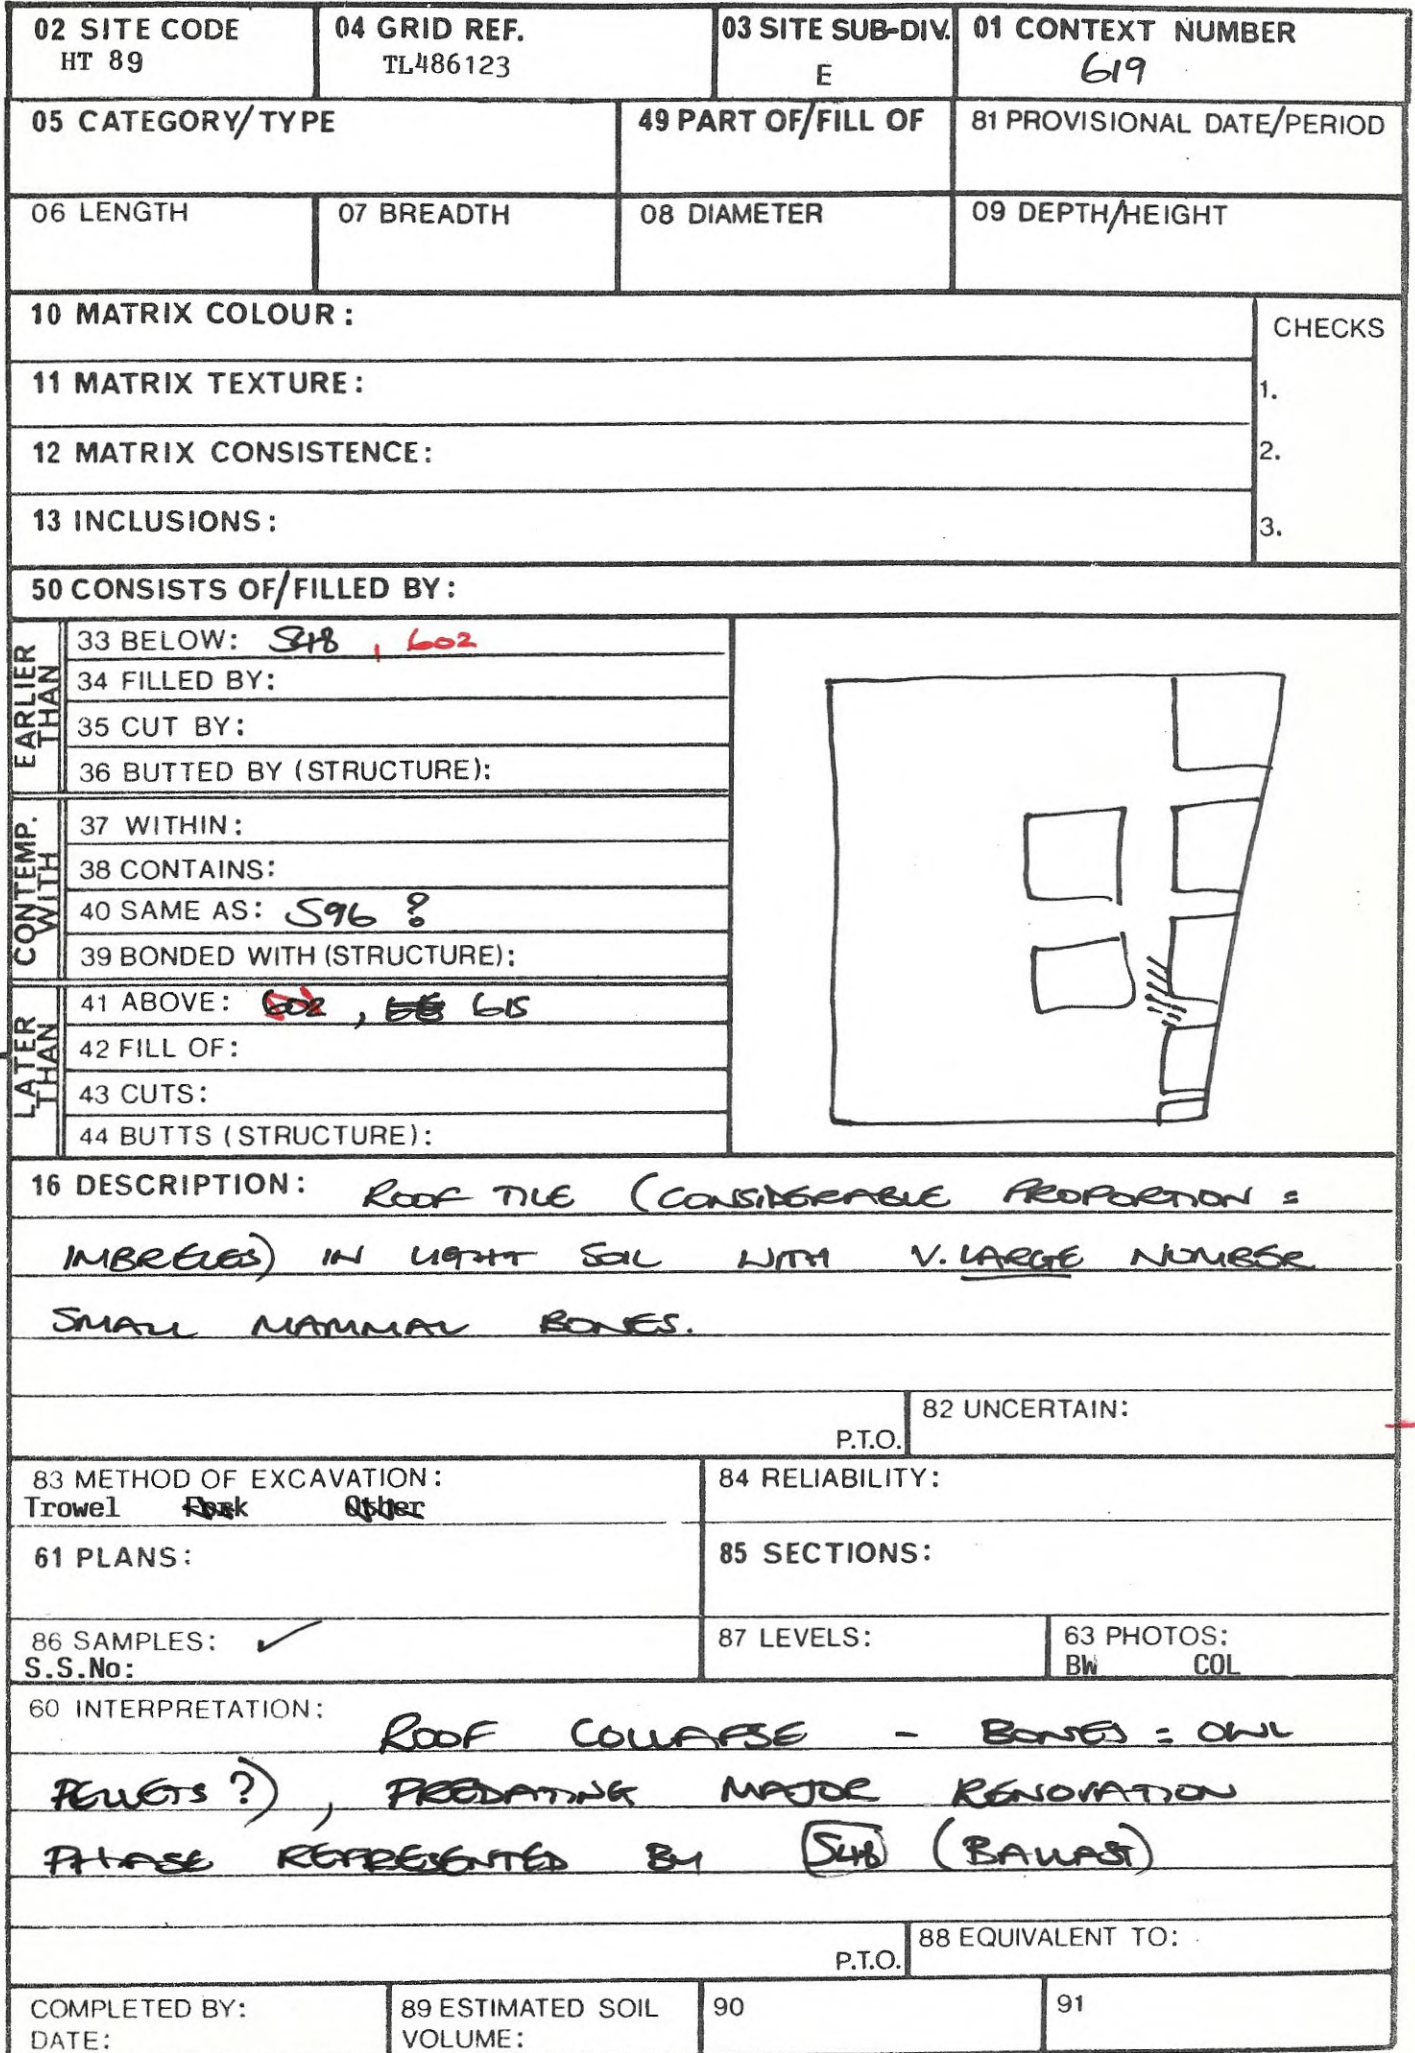 02 SITE CODE 04 GRID REF. 03 SITE SUB-DIV. 01 CONTEXT NUMBER
HT 89 TL486123 E 619
05 CATEGORY/TYPE 49 PART OF/FILL OF 81 PROVISIONAL DATE/PERIOD
06 LENGTH 07 BREADTH 08 DIAMETER 09 DEPTH/HEIGHT
10 MATRIX COLOUR:
CHECKS
11 MATRIX TEXTURE:
1.
12 MATRIX CONSISTENCE:
2.
13 INCLUSIONS:
3.
50 CONSISTS OF/FILLED BY:
EARLIER THAN
33 BELOW: 548 , 602
34 FILLED BY:
35 CUT BY:
36 BUTTED BY (STRUCTURE):
CONTEMP. WITH
37 WITHIN:
38 CONTAINS:
40 SAME AS: 596 ?
39 BONDED WITH (STRUCTURE):
LATER THAN
41 ABOVE: 602 , 615
42 FILL OF:
43 CUTS:
44 BUTTS (STRUCTURE):
16 DESCRIPTION: ROOF TILE (CONSIDERABLE PROPORTION =
IMBRECES) IN LIGHT SOIL WITH V. LARGE NUMBER
SMALL MAMMAL BONES.
P.T.O. 82 UNCERTAIN:
83 METHOD OF EXCAVATION: 84 RELIABILITY:
Trowel Fork Other
61 PLANS: 85 SECTIONS:
86 SAMPLES: ✓ 87 LEVELS: 63 PHOTOS:
S.S.No: BW COL
60 INTERPRETATION:
ROOF COLLAPSE - BONES = OWL
PELLETS?) , PREDATING MAJOR RENOVATION
PHASE REPRESENTED BY 548 (BALLAST)
P.T.O. 88 EQUIVALENT TO:
COMPLETED BY: 89 ESTIMATED SOIL 90 91
DATE: VOLUME: